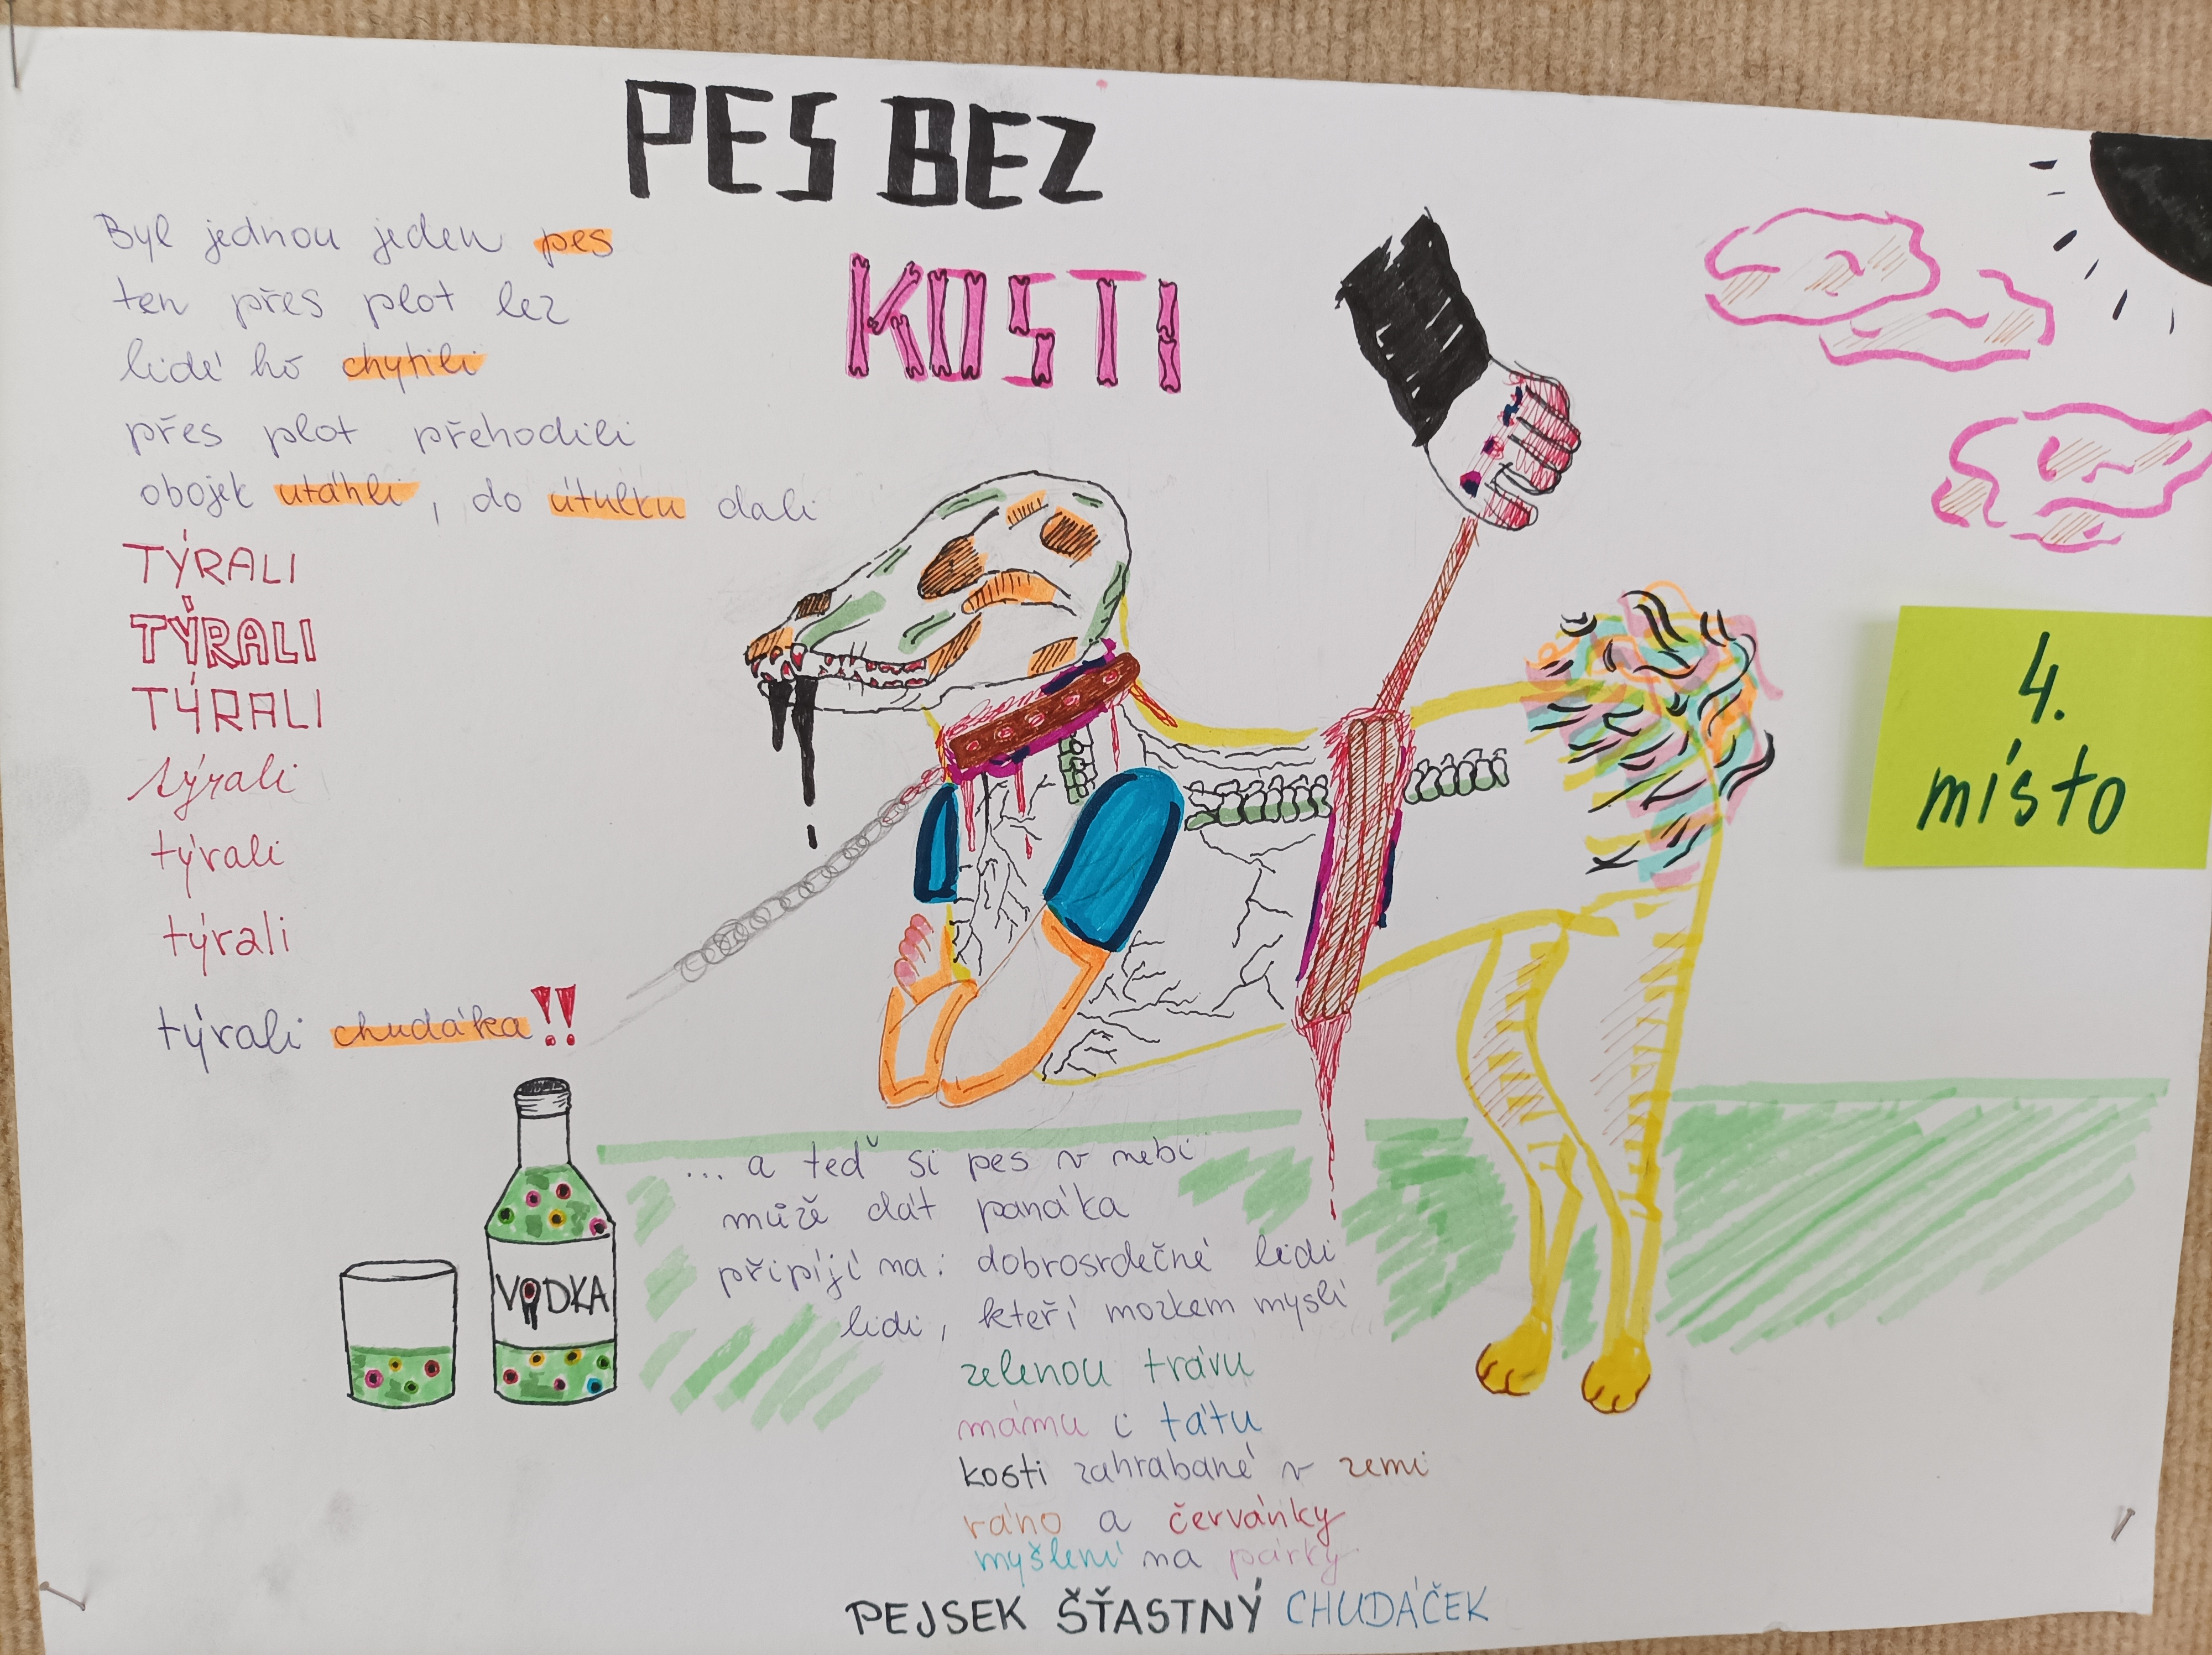 PES BEZ
KOSTI
Byl jednou jeden pes
ten přes plot lez
lidé ho chytili
přes plot přehodili
obojek utáhli, do útulku dali
TÝRALI
TÝRALI
TÝRALI
týrali
týrali
týrali
týrali chudáka!!
4.
místo
VODKA
... a teď si pes v nebi
může dát panáka
připíjí na: dobrosrdečné lidi
lidi, kteří mozkem myslí
zelenou trávu
mámu i tátu
kosti zahrabané v zemi
ráno a červánky
myšlení na párky
PEJSEK ŠŤASTNÝ CHUDÁČEK